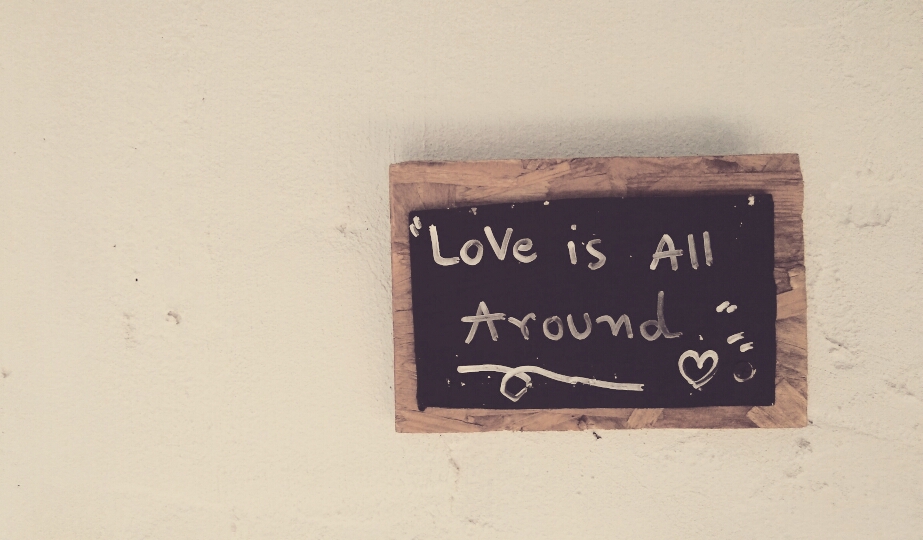 "Love is All
Around."